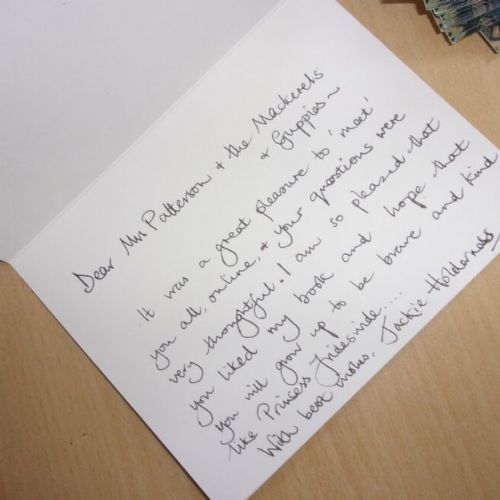 Dear Mrs Patterson & the Mackerels
& Guppies ~
It was a great pleasure to 'meet'
you all, online, & your questions were
very thoughtful. I am so pleased that
you liked my book and hope that
you will grow up to be brave and kind
like Princess Frideswide....
With best wishes, Jackie Holderness